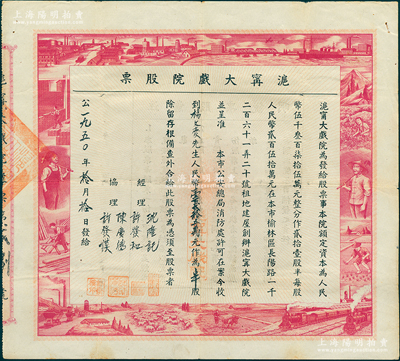 上海陽明拍賣
滬甯大戲院股票
滬甯大戲院為發給股票事本院額定資本為人民
幣伍千叁百柒拾伍萬元整分作貳拾壹股半每股
人民幣貳百伍拾萬元在本市榆林區長陽路一千
二百六十一弄二十號租地建屋創辦滬甯大戲院
並呈准 本市公安總局消防處許可在案今收
到楊 先生人民幣 萬元作為半股
除留存根備查外合給此股票為憑須至股票者
經理 沈 許
協理 陳 許
公一九五〇年拾月拾日發給
上海陽明拍賣